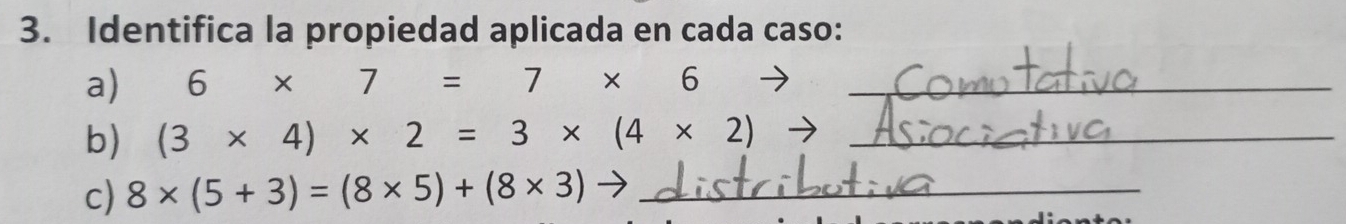 3. Identifica la propiedad aplicada en cada caso:
a) 6 × 7 = 7 × 6 → Comutativa
b) (3 × 4) × 2 = 3 × (4 × 2) → Asiociativa
c) 8 × (5 + 3) = (8 × 5) + (8 × 3) → distributiva